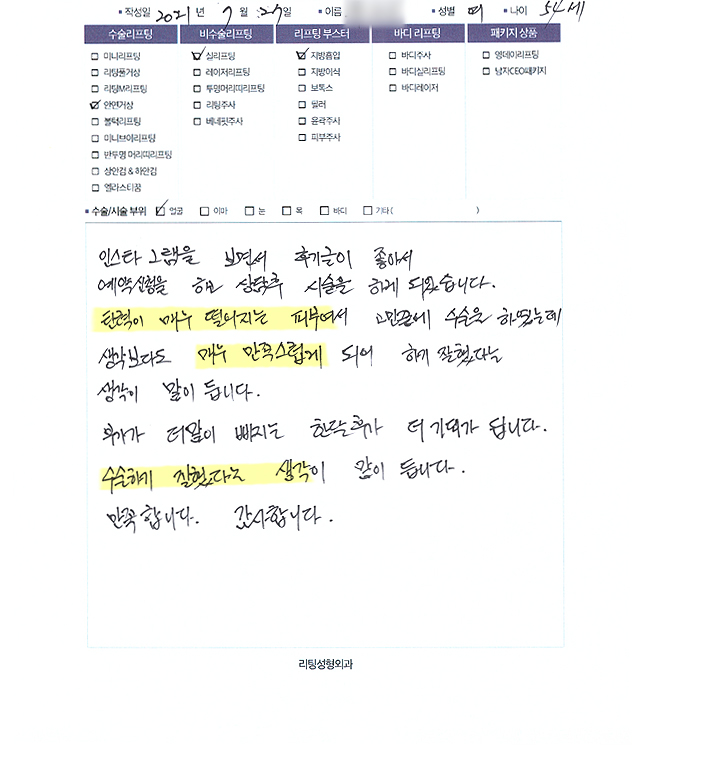 작성일 2021년 7월 27일 이름 성별 여 나이 54세
수술리프팅 비수술리프팅 리프팅 부스터 바디 리프팅 패키지 상품
미니리프팅 실리프팅 지방흡입 바디주사 영데이리프팅
리팅풀거상 레이저리프팅 지방이식 바디실리프팅 남자CEO패키지
리팅M리프팅 투명머리띠리프팅 보톡스 바디레이저
안면거상 리팅주사 필러
볼턱리프팅 베네핏주사 윤곽주사
미니브이리프팅 피부주사
반투명 머리띠리프팅
상안검 & 하안검
엘라스티꿈
수술/시술 부위 얼굴 이마 눈 목 바디 기타( )
인스타 그램을 보면서 후기글이 좋아서
예약신청을 하고 상담후 시술을 하게 되었습니다.
탄력이 매우 떨어지는 피부여서 고민끝에 수술을 하였는데
생각보다도 매우 만족스럽게 되어 하기 잘했다는
생각이 많이 듭니다.
부기가 더많이 빠지는 한달후가 더 기대가 됩니다.
수술하기 잘했다는 생각이 많이 듭니다.
만족 합니다. 감사합니다.
리팅성형외과